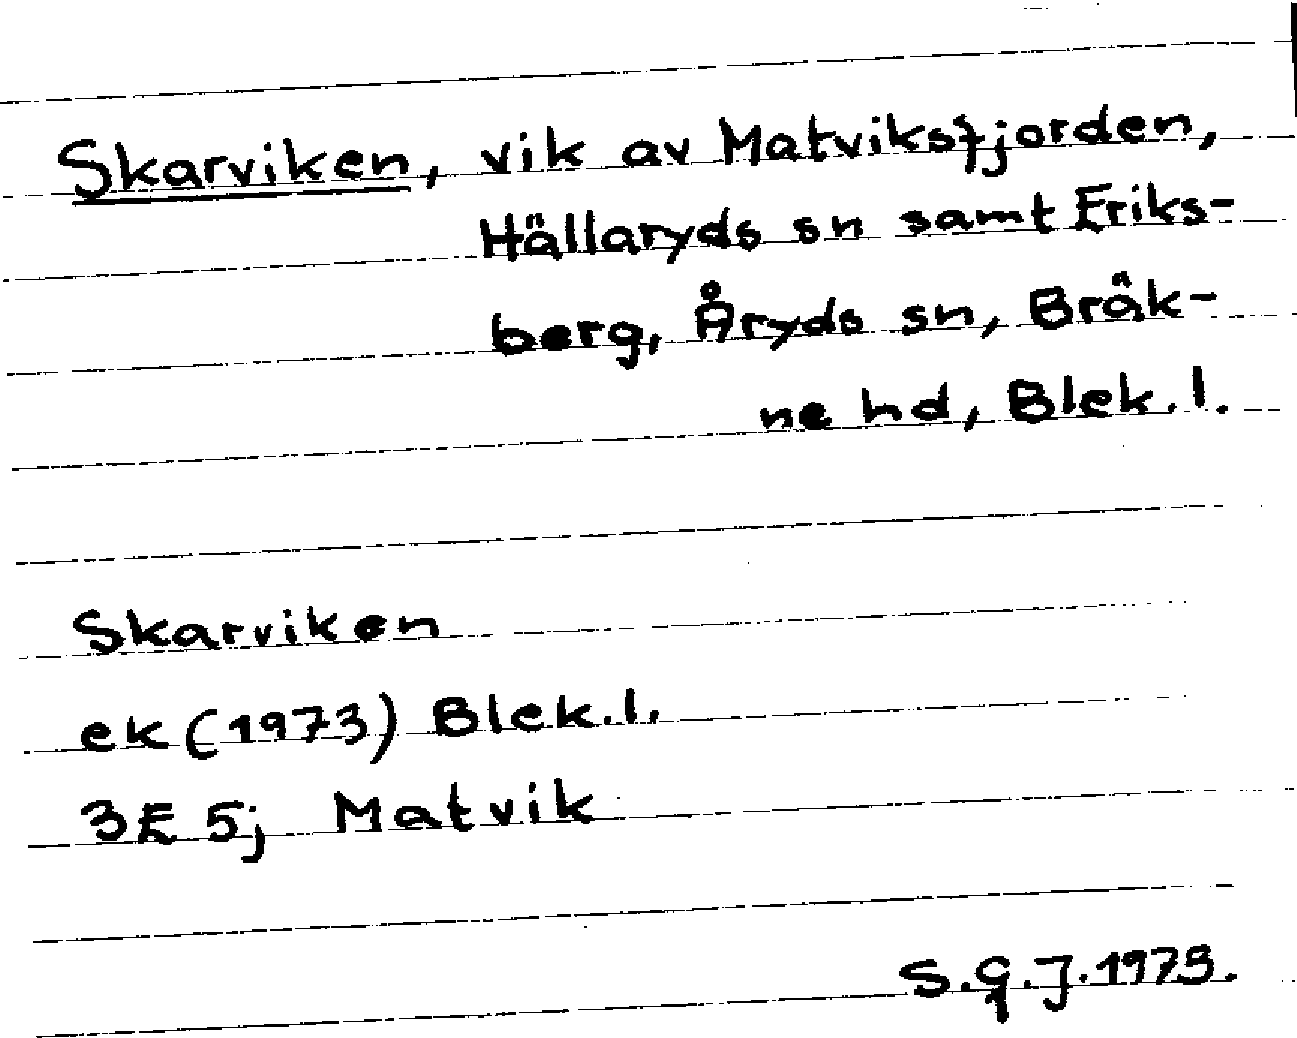 Skarviken, vik av Matviksfjorden,
Hällaryds sn samt Eriks-
berg, Åryds sn, Bräk-
ne hd, Blek. l.
Skarviken
ek (1973) Blek. l.
3E 5j Matvik
S.G.J. 1973.